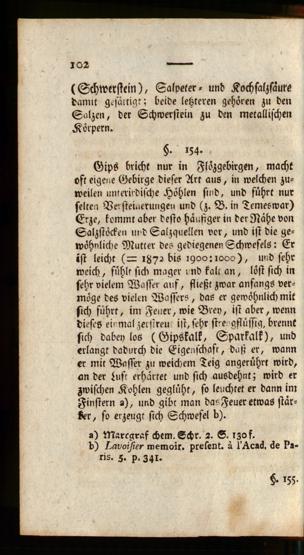 102
(Schwerstein), Salpeter- und Kochsalzsäure
damit gesättigt; beide letzteren gehören zu den
Salzen, der Schwerstein zu den metallischen
Körpern.
§. 154.
Gips bricht nur in Flözgebirgen, macht
oft eigene Gebirge dieser Art aus, in welchen zu-
weilen unterirdische Höhlen sind, und führt nur
selten Versteinerungen und (z. B. in Temeswar)
Erze, kommt aber desto häufiger in der Nähe von
Salzstöcken und Salzquellen vor, und ist die ge-
wöhnliche Mutter des gediegenen Schwefels: Er
ist leicht (= 1872 bis 1900:1000), und sehr
weich, fühlt sich mager und kalt an, löst sich in
sehr vielem Wasser auf, fließt zwar anfangs ver-
möge des vielen Wassers, das er gewöhnlich mit
sich führt, im Feuer, wie Brey, ist aber, wenn
dieses einmal zerstreut ist, sehr strengflüssig, brennt
sich dabey los (Gipskalk, Sparkalk), und
erlangt dadurch die Eigenschaft, daß er, wann
er mit Wasser zu weichem Teig angerührt wird,
an der Luft erhärtet und sich ausdehnt; wird er
zwischen Kohlen geglüht, so leuchtet er dann im
Finstern a), und gibt man das Feuer etwas stär-
ker, so erzeugt sich Schwefel b).
a) Marcgraf chem. Schr. 2. S. 130 f.
b) Lavoisier memoir. present. à l'Acad. de Pa-
ris. 5. p. 341.
§. 155.